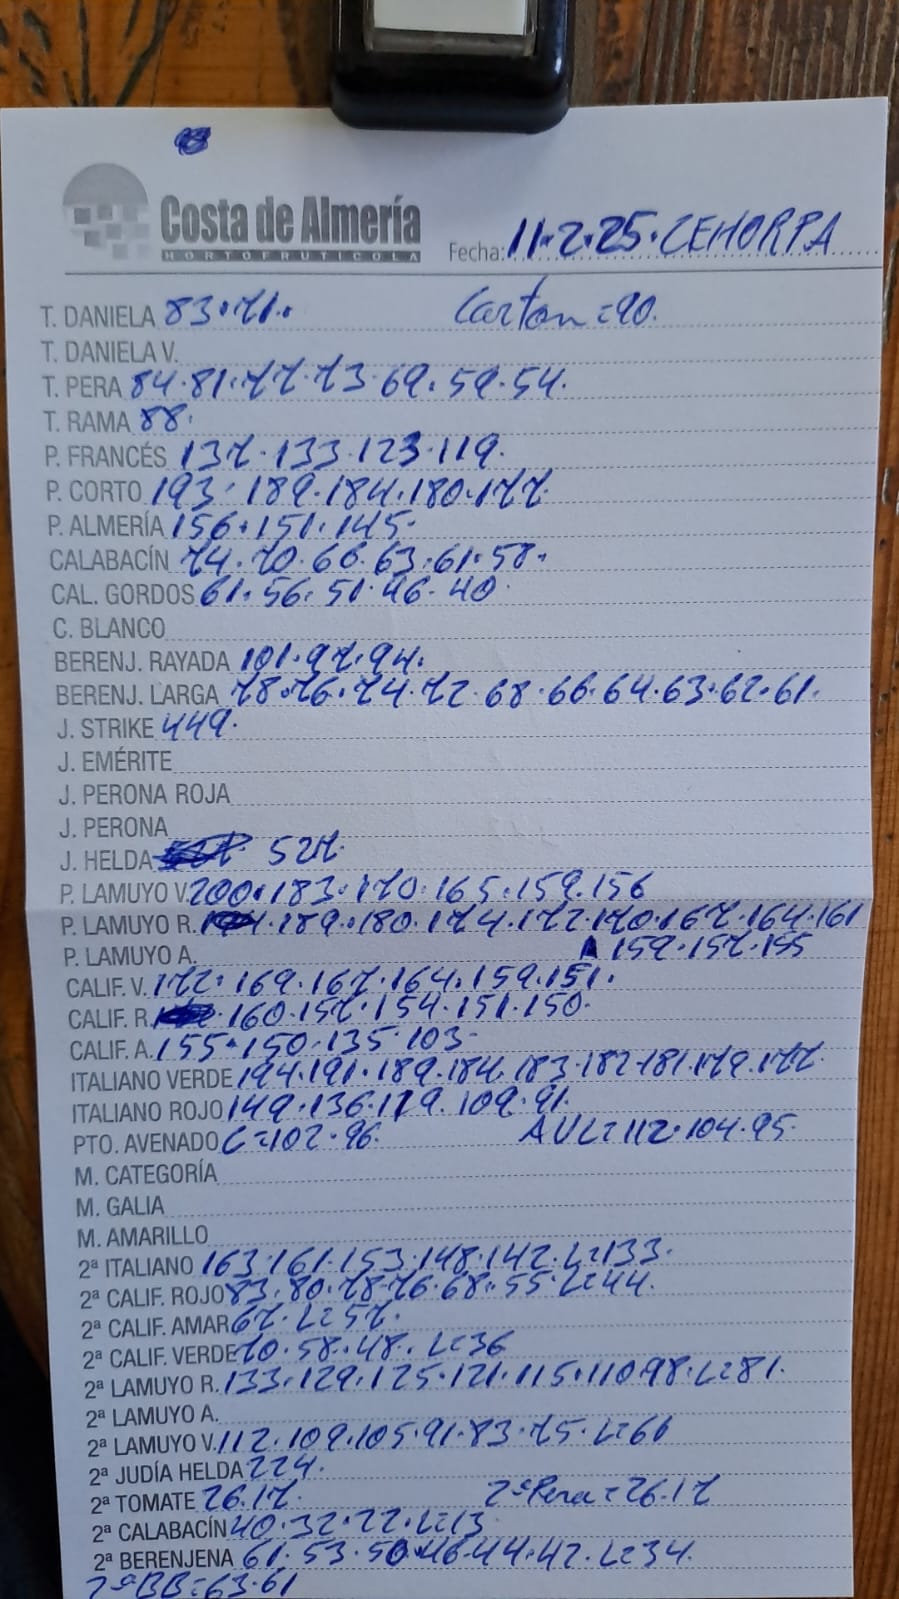 Costa de Almería
HORTOFRUTICOLA
Fecha: 11.2.25. CEHORPA
T. DANIELA 83.71. Carton=90.
T. DANIELA V.
T. PERA 84.81.77.73.69.59.54.
T. RAMA 88.
P. FRANCÉS 137.133.123.119.
P. CORTO 193.189.184.180.177.
P. ALMERÍA 156.151.145.
CALABACÍN 74.70.66.63.61.58.
CAL. GORDOS 61.56.51.46.40.
C. BLANCO
BERENJ. RAYADA 101.97.94.
BERENJ. LARGA 78.76.74.72.68.66.64.63.62.61.
J. STRIKE 449.
J. EMÉRITE
J. PERONA ROJA
J. PERONA
J. HELDA 527.
P. LAMUYO V. 200.183.170.165.159.156
P. LAMUYO R. .189.180.174.172.170.167.164.161
P. LAMUYO A. 159.157.155
CALIF. V. 172.169.167.164.159.151.
CALIF. R. .160.157.154.151.150.
CALIF. A. 155.150.135.103.
ITALIANO VERDE 194.191.189.184.183.182.181.179.177.
ITALIANO ROJO 149.136.119.109.91.
PTO. AVENADO C=102.96. AVL=112.104.95.
M. CATEGORÍA
M. GALIA
M. AMARILLO
2ª ITALIANO 163.161.153.148.142.L=133.
2ª CALIF. ROJO 83.80.78.76.68.55.L=44.
2ª CALIF. AMAR 67.L=57.
2ª CALIF. VERDE 70.58.48.L=36
2ª LAMUYO R. 133.129.125.121.115.110.98.L=81.
2ª LAMUYO A.
2ª LAMUYO V. 112.109.105.91.83.75.L=66
2ª JUDÍA HELDA 224.
2ª TOMATE 26.17. 2ªPera=26.17
2ª CALABACÍN 40.32.22.L=13
2ª BERENJENA 61.53.50.46.44.42.L=34.
2ªBB=63.61